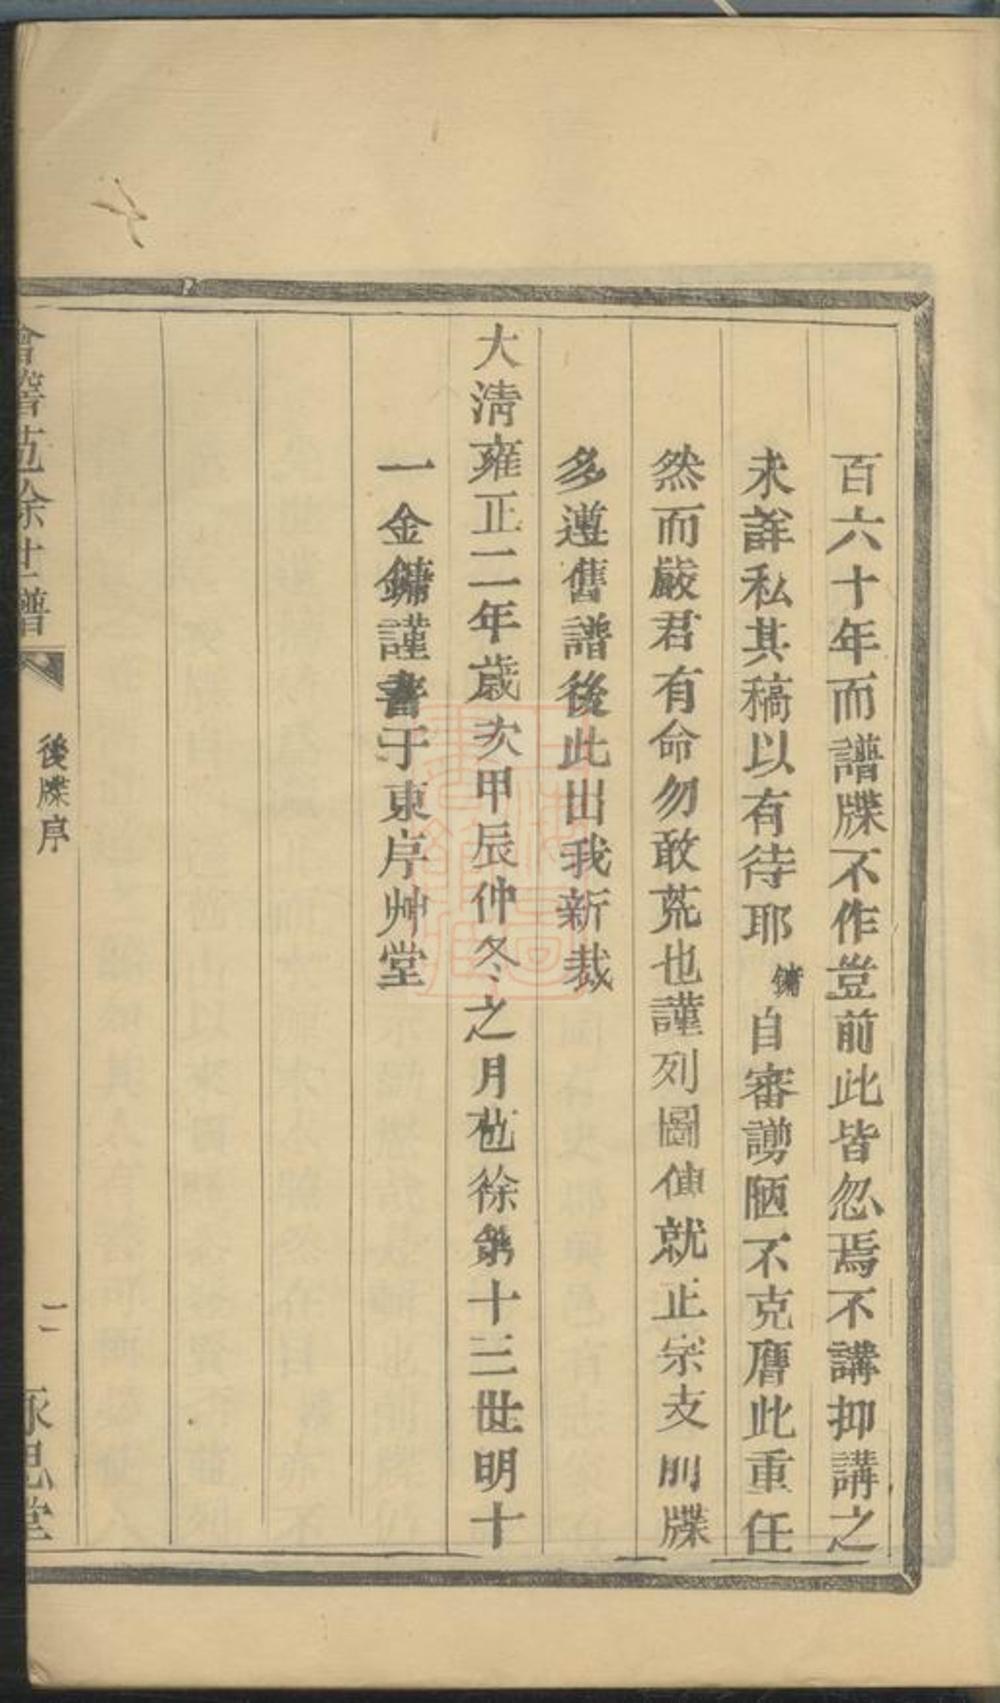 百六十年而譜牒不作豈前此皆忽焉不講抑講之
未詳私其稿以有待耶鏞自審謭陋不克膺此重任
然而嚴君有命勿敢荒也謹列圖傳就正宗支別牒
多遵舊譜後此出我新裁
大清雍正二年歲次甲辰仲冬之月苞徐第十三世明十
一金鏞謹書于東序艸堂
會稽苞徐世譜
後牒序
二
永思堂